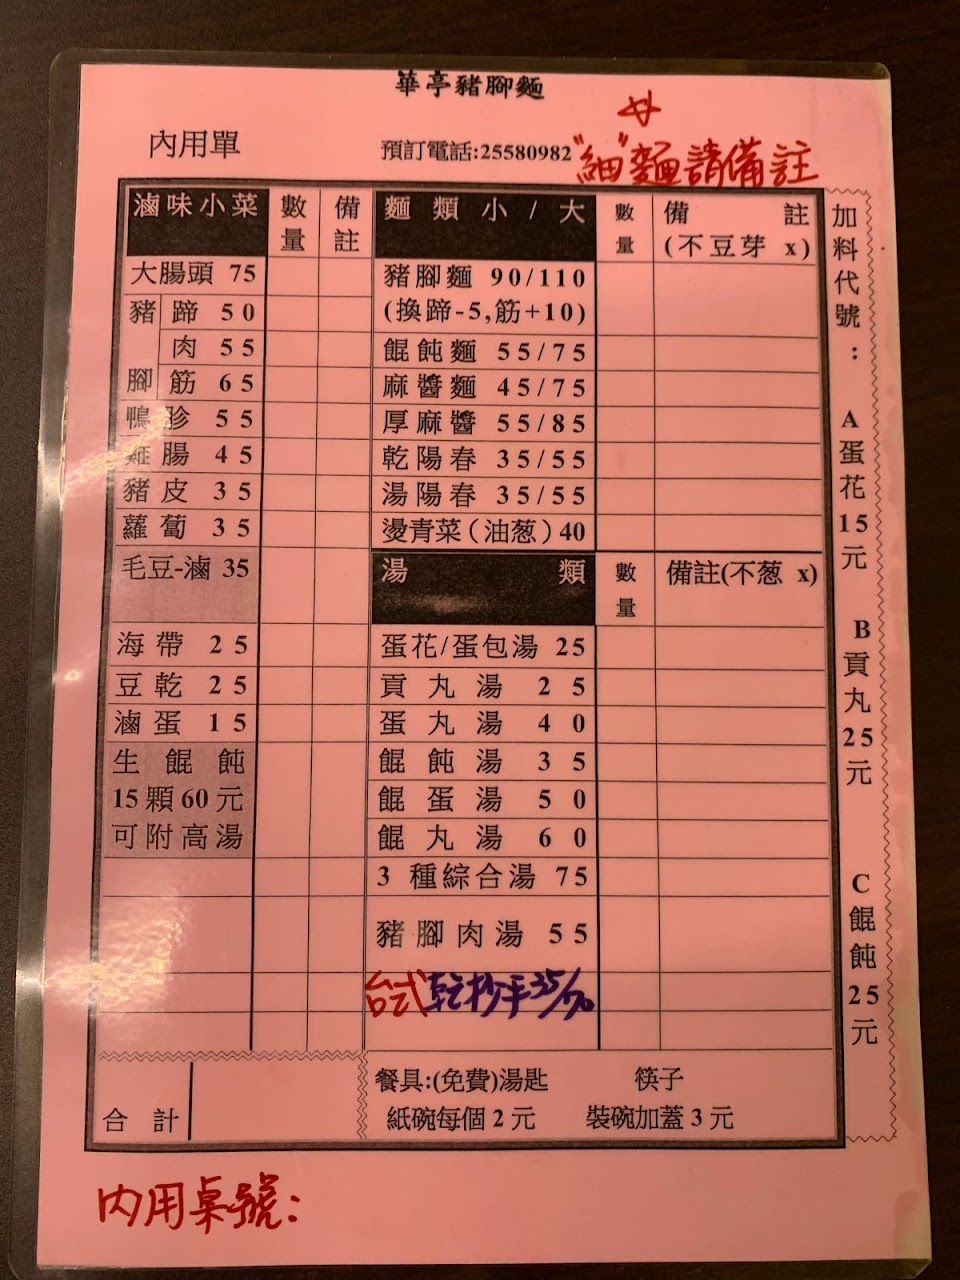 華亭豬腳麵
內用單
預訂電話:25580982
"細"麵請備註
滷味小菜 數量 備註
大腸頭 75
豬腳 蹄 50
肉 55
筋 65
鴨胗 55
雞腸 45
豬皮 35
蘿蔔 35
毛豆-滷 35
海帶 25
豆乾 25
滷蛋 15
生餛飩
15顆60元
可附高湯
合計
麵類小/大 數量 備註
(不豆芽 x)
豬腳麵 90/110
(換蹄-5,筋+10)
餛飩麵 55/75
麻醬麵 45/75
厚麻醬 55/85
乾陽春 35/55
湯陽春 35/55
燙青菜(油葱)40
湯類 數量 備註(不葱 x)
蛋花/蛋包湯 25
貢丸湯 25
蛋丸湯 40
餛飩湯 35
餛蛋湯 50
餛丸湯 60
3 種綜合湯 75
豬腳肉湯 55
台式乾抄手35/70
餐具:(免費)湯匙 筷子
紙碗每個2元 裝碗加蓋3元
加料代號:
A蛋花15元
B貢丸25元
C餛飩25元
內用桌號: